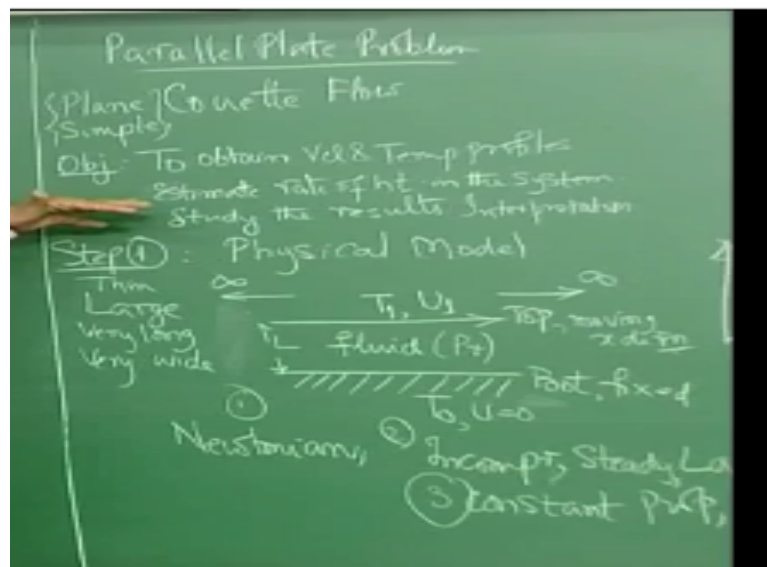 Parallel Plate Problem
{Plane} Couette Flow
{Simple}
Obj: To obtain Vel & Temp profile
Estimate rate of ht in the System
Study the results Interpretation
Step ① : Physical Model
Thin ∞ ∞
Large T₁, U₁
Very long Top, moving
x dirn
L fluid (Pr)
Very wide
Bott, fixed
T₀, u=0
①
Newtonian,
② Incompr, Steady, La
③ Constant Prop,